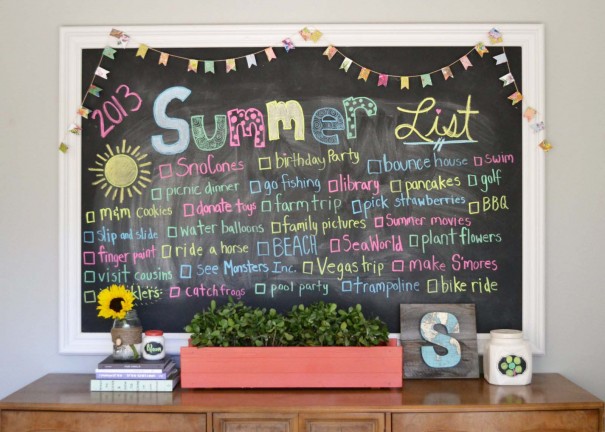 2013 Summer List
SnoCones birthday Party bounce house swim
picnic dinner go fishing library pancakes golf
m&m cookies donate toys farm trip pick strawberries BBQ
slip and slide water balloons family pictures Summer movies
finger paint ride a horse BEACH SeaWorld plant flowers
visit cousins see Monsters Inc. Vegas trip make S'mores
catch frogs pool party trampoline bike ride
S